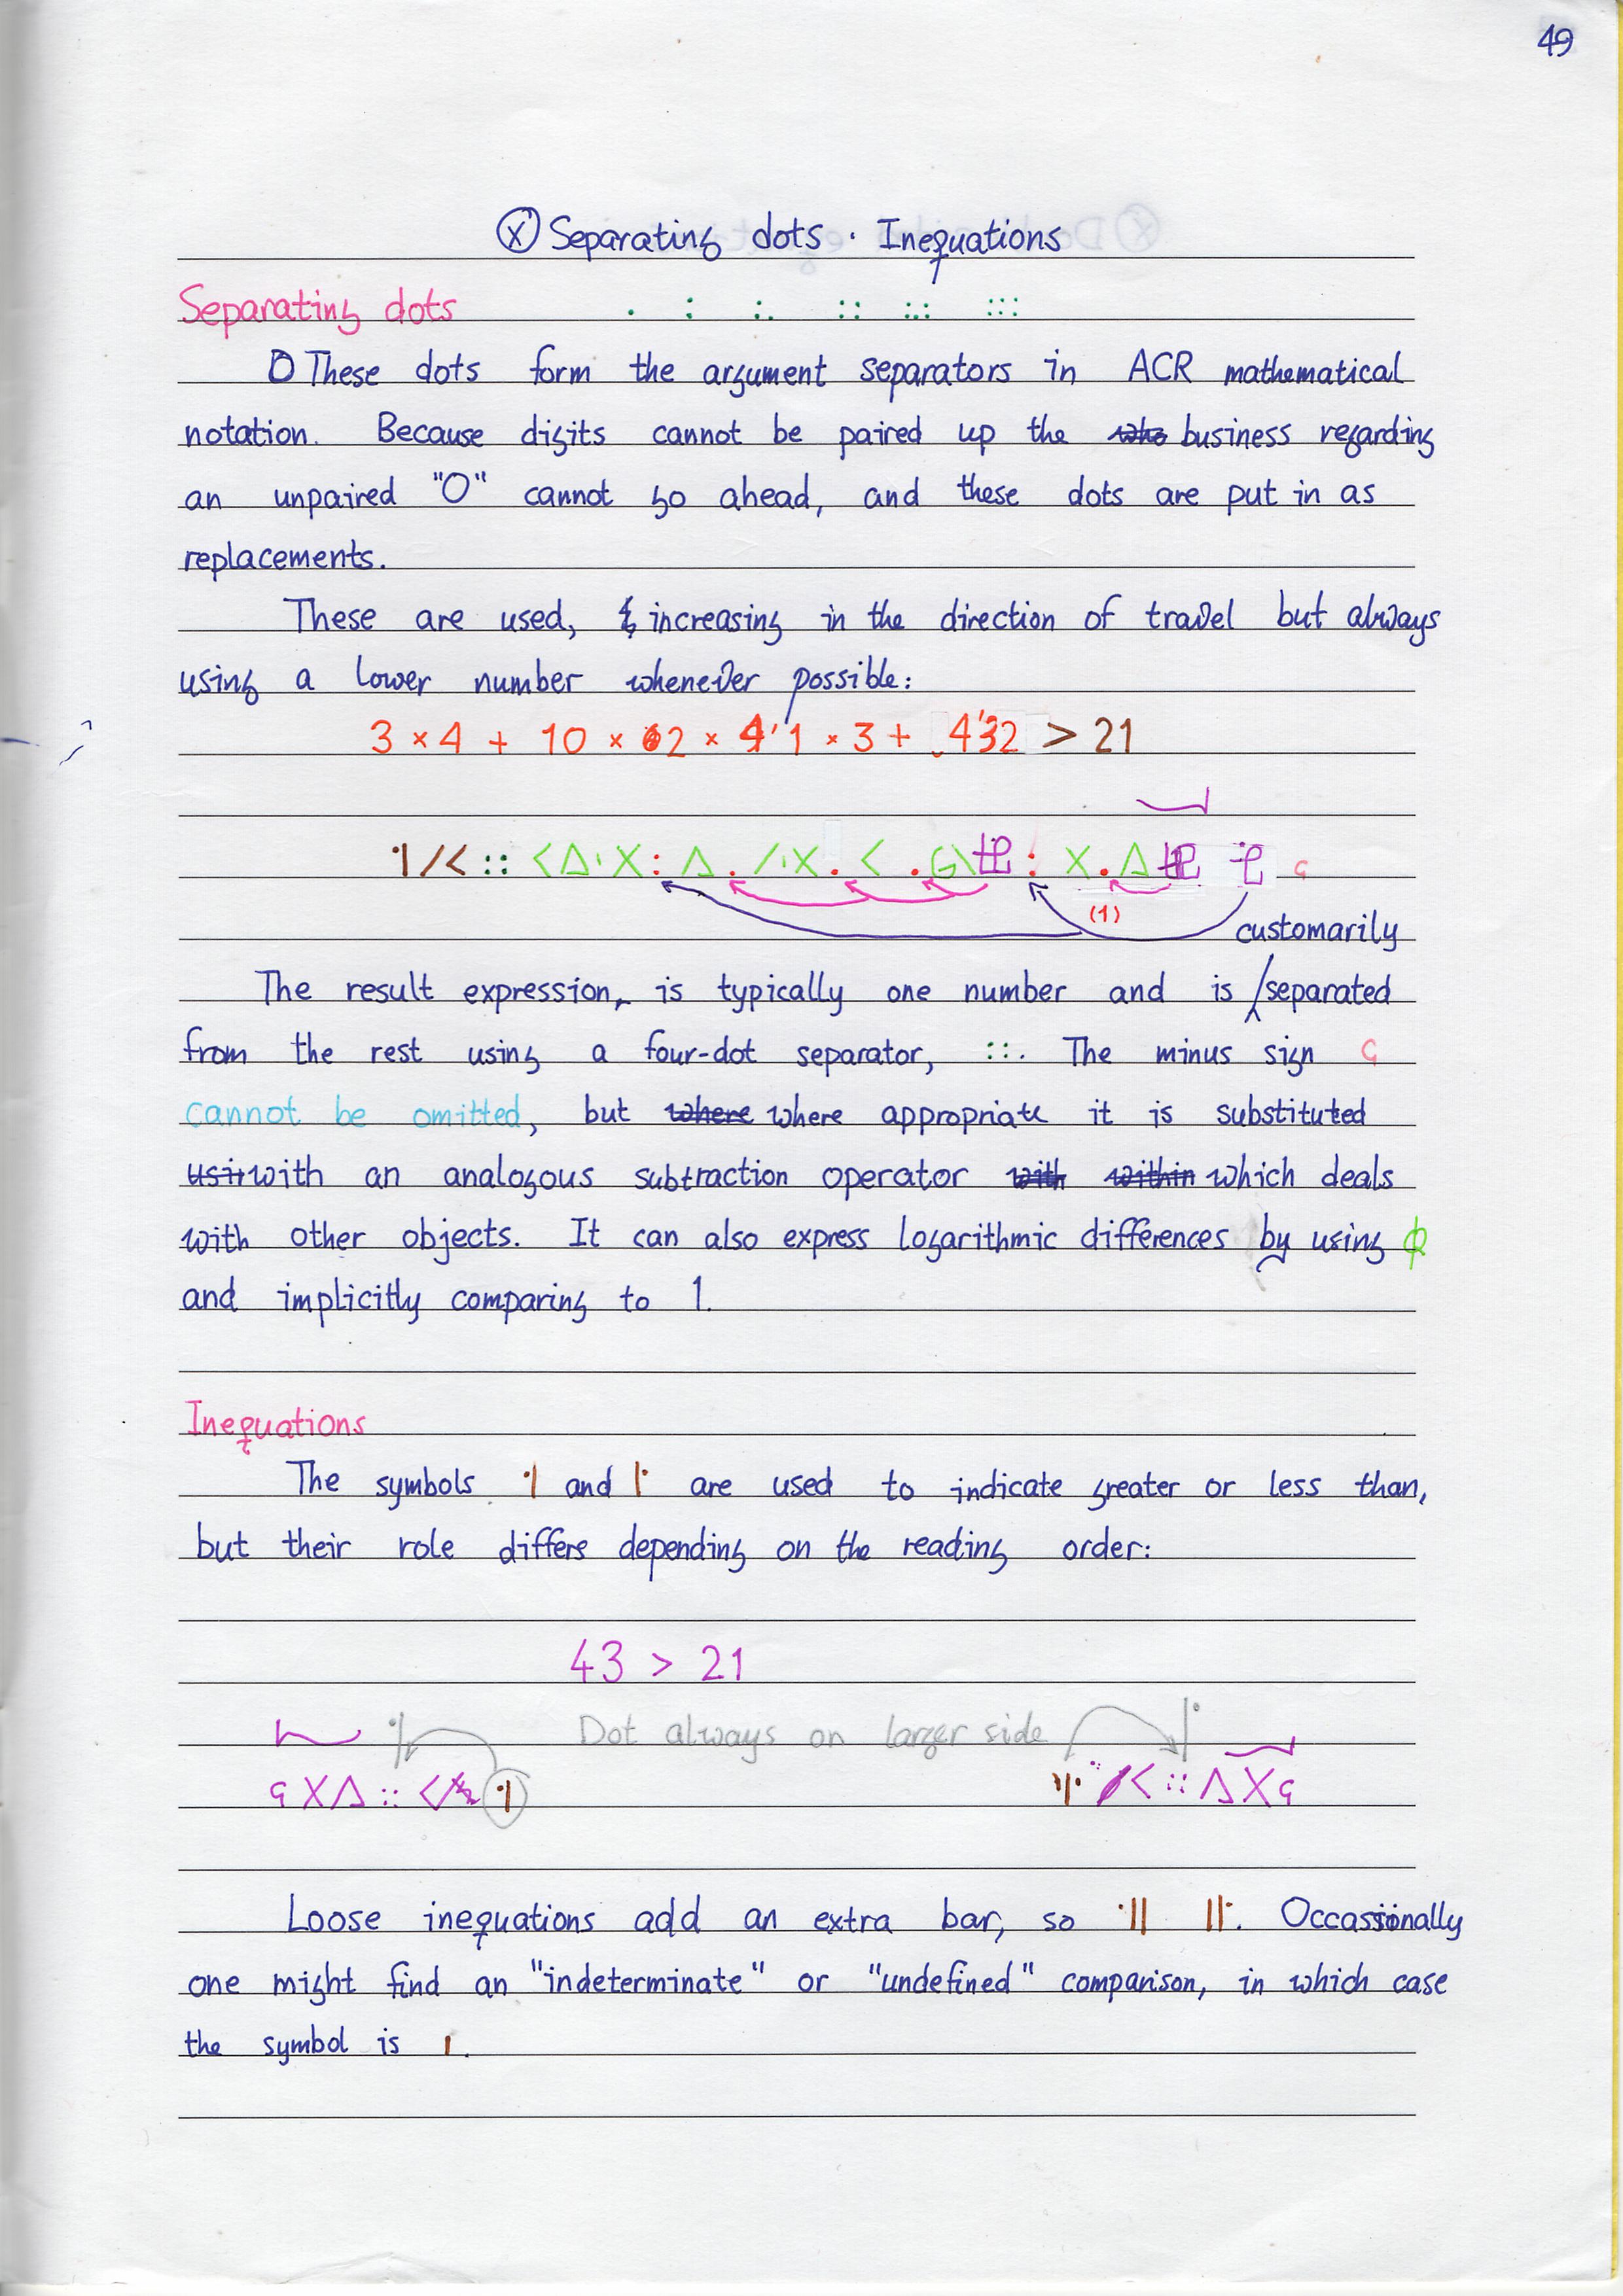 49
Ⓧ Separating dots · Inequations
Separating dots . : :. :: ::. :::
These dots form the argument separators in ACR mathematical
notation. Because digits cannot be paired up the who business regarding
an unpaired "O" cannot go ahead, and these dots are put in as
replacements.
These are used, increasing in the direction of travel but always
using a lower number whenever possible:
3 × 4 + 10 × 2 × 4'1 × 3 + 4'32 > 21
(1)
customarily
The result expression, is typically one number and is separated
from the rest using a four-dot separator, ::. The minus sign
cannot be omitted, but where where appropriate it is substituted
usin with an analogous subtraction operator with within which deals
with other objects. It can also express logarithmic differences by using ϕ
and implicitly comparing to 1.
Inequations
The symbols ·| and |· are used to indicate greater or less than,
but their role differs depending on the reading order:
43 > 21
Dot always on larger side
Loose inequations add an extra bar, so ·|| ||·. Occassionally
one might find an "indeterminate" or "undefined" comparison, in which case
the symbol is ı.